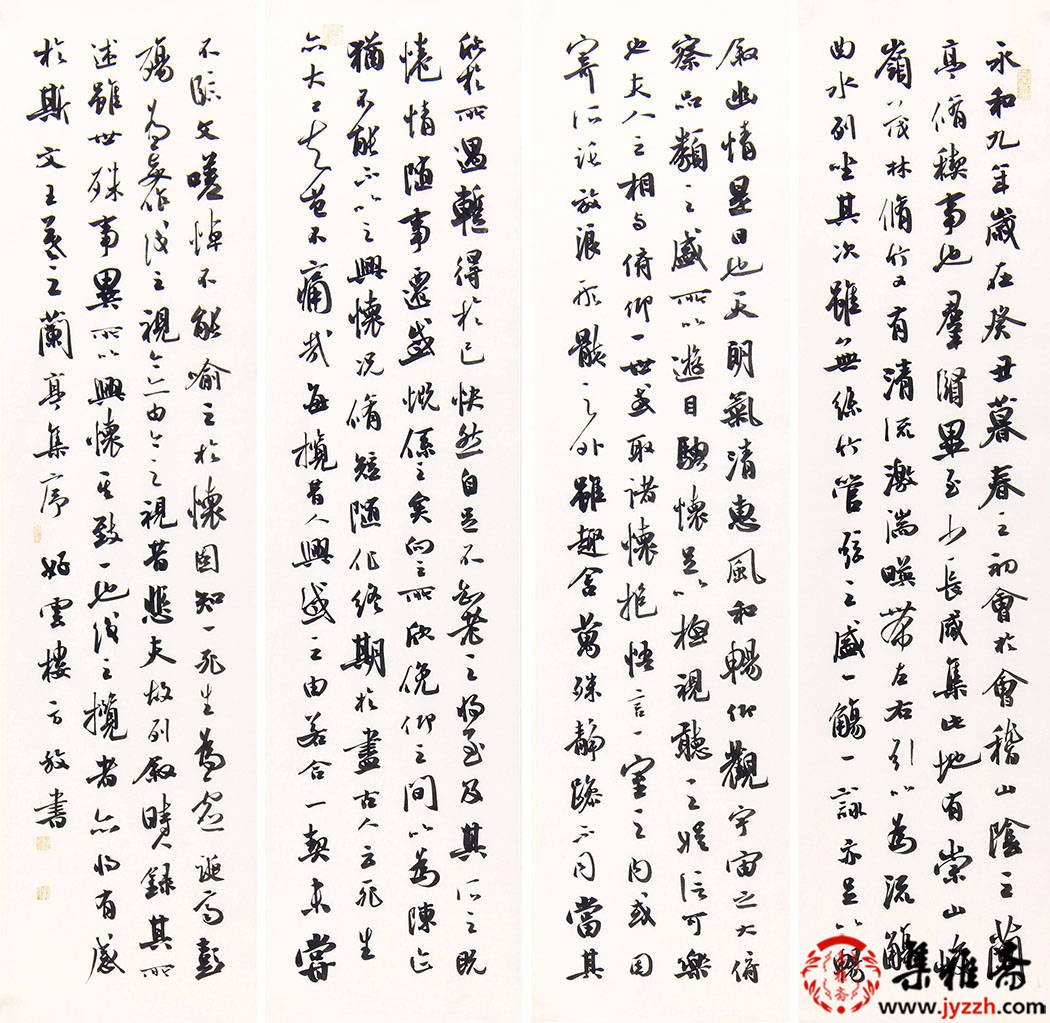 永和九年歲在癸丑暮春之初會於會稽山陰之蘭
亭脩稧事也羣賢畢至少長咸集此地有崇山峻
嶺茂林脩竹又有清流激湍暎帶左右引以為流觴
曲水列坐其次雖無絲竹管弦之盛一觴一詠亦足以暢
敘幽情是日也天朗氣清惠風和暢仰觀宇宙之大俯
察品類之盛所以遊目騁懷足以極視聽之娛信可樂
也夫人之相與俯仰一世或取諸懷抱悟言一室之內或因
寄所託放浪形骸之外雖趣舍萬殊靜躁不同當其
欣於所遇蹔得於己快然自足不知老之將至及其所之既
惓情隨事遷感慨係之矣向之所欣俛仰之間以為陳迹
猶不能不以之興懷況脩短隨化終期於盡古人云死生
亦大矣豈不痛哉每攬昔人興感之由若合一契未嘗
不臨文嗟悼不能喻之於懷固知一死生為虛誕齊彭
殤為妄作後之視今亦由今之視昔悲夫故列敘時人錄其所
述雖世殊事異所以興懷其致一也後之攬者亦將有感
於斯文王羲之蘭亭集序 好雲樓方放書
集雅斋
www.jyzzh.com